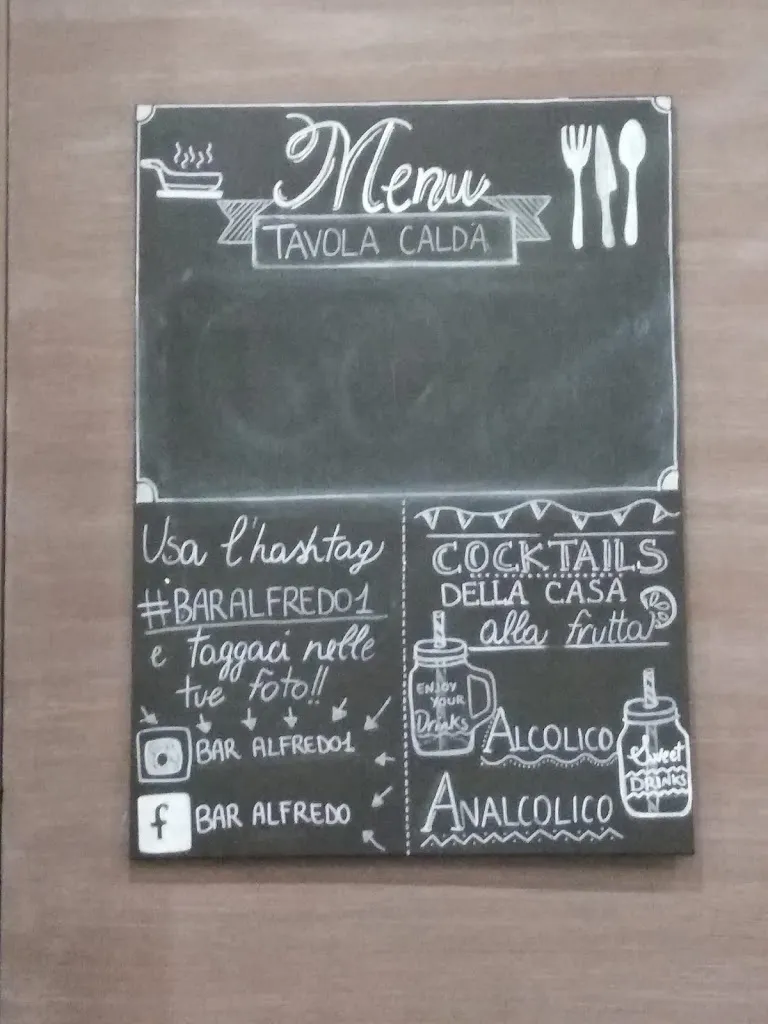 Menu
TAVOLA CALDA
Usa l'hashtag
#BARALFREDO1
e taggaci nelle
tue foto!!
BAR ALFREDO1
f BAR ALFREDO
COCKTAILS
DELLA CASA
alla frutta
ENJOY
YOUR
Drinks
ALCOLICO
Sweet
DRINKS
ANALCOLICO